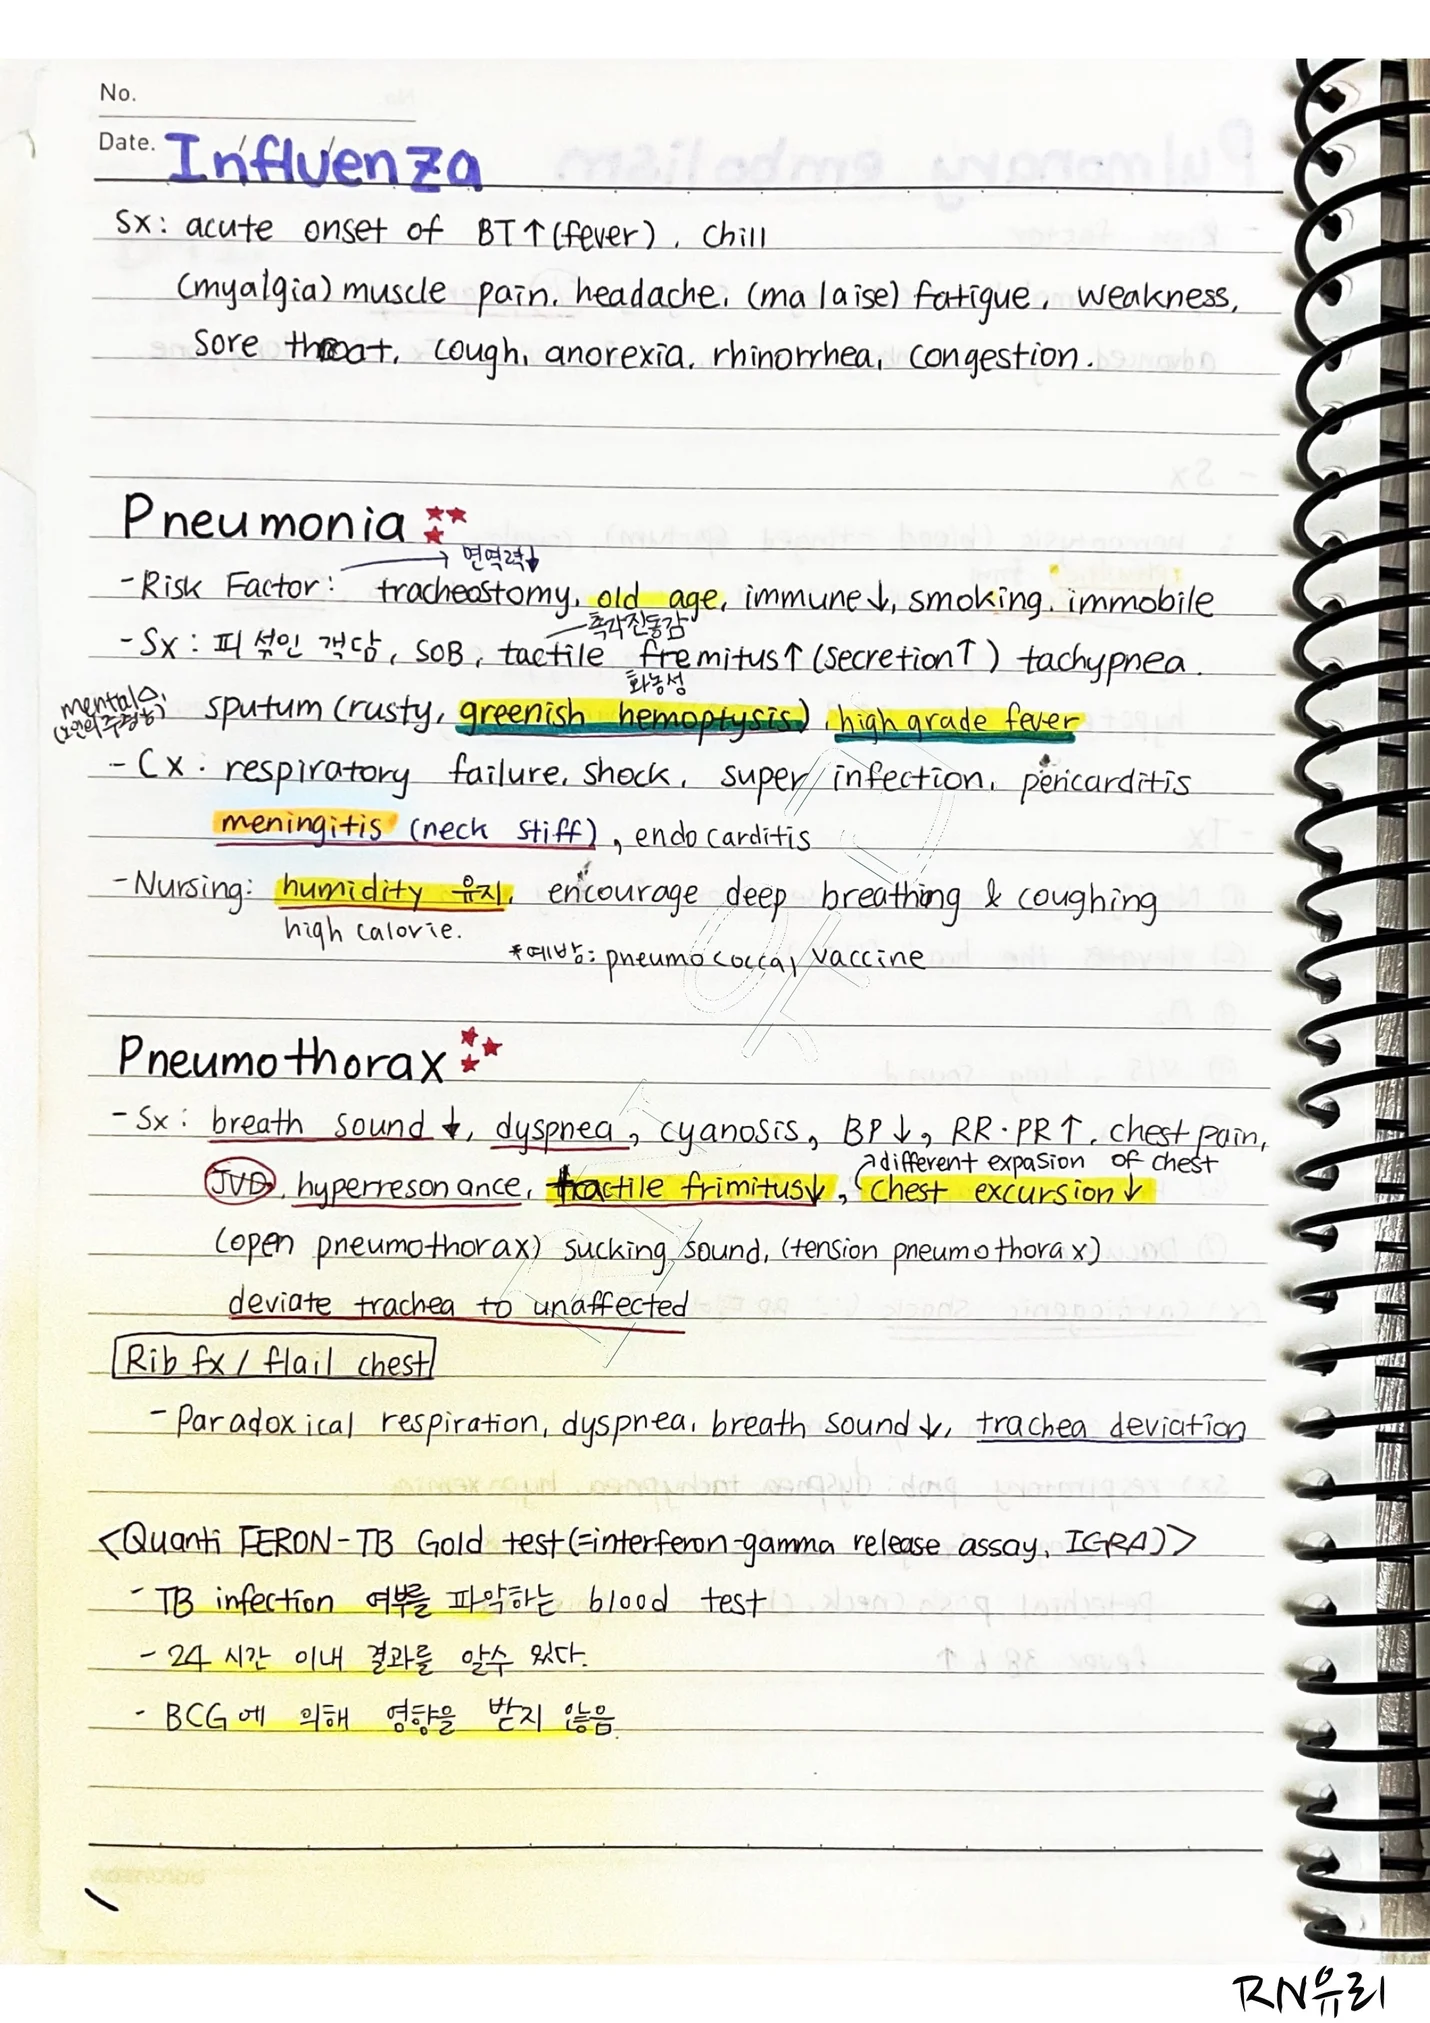 No.
Date. Influenza
Sx: acute onset of BT↑(fever). chill
(myalgia) muscle pain. headache. (malaise) fatigue. weakness,
sore throat. cough. anorexia. rhinorrhea. congestion.
Pneumonia
→ 면역력↓
- Risk Factor: tracheostomy. old age, immune↓, smoking. immobile
촉각진동감
- Sx: 피 섞인 객담, SOB, tactile fremitus↑ (secretion↑) tachypnea.
화농성
mental△,
sputum (rusty, greenish hemoptysis), high grade fever
- Cx: respiratory failure. shock. super infection. pericarditis
meningitis (neck stiff), endocarditis
- Nursing: humidity 유지. encourage deep breathing & coughing
high calorie.
*예방: pneumococcal vaccine
Pneumothorax
- Sx: breath sound↓, dyspnea, cyanosis, BP↓, RR·PR↑. chest pain,
different expasion of chest
JVD. hyperresonance, tactile frimitus↓, chest excursion↓
(open pneumothorax) sucking sound, (tension pneumothorax)
deviate trachea to unaffected
Rib fx / flail chest
- Paradoxical respiration, dyspnea. breath sound↓, trachea deviation
<QuantiFERON-TB Gold test (=interferon-gamma release assay, IGRA)>
- TB infection 여부를 파악하는 blood test
- 24시간 이내 결과를 알수 있다.
- BCG에 의해 영향을 받지 않음.
RN유리